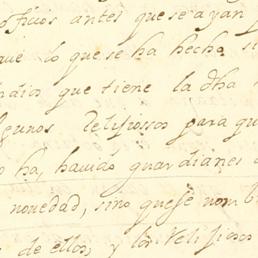 oficios antes que se ayan p
que lo que se ha hecho, si
ndios que tiene la dha
lgunos Relisiossos para qu
o ha, havido guardianes
novedad, sino que se nom
de ellos, y los Relisiosos